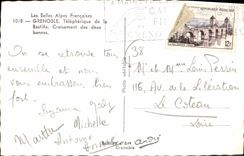 Les Belles Alpes Françaises
1018 — GRENOBLE. Téléphérique de la
Bastille. Croisement des deux
bennes.
12F
38
On se retrouve tous
ensemble et nous
vous embrassons bien
fort.
Suzanne
Michelle
Antoine
André
M. et Mme Louis Perrin
116, Av. de la Libération
Le Coteau
Loire
Grenoble